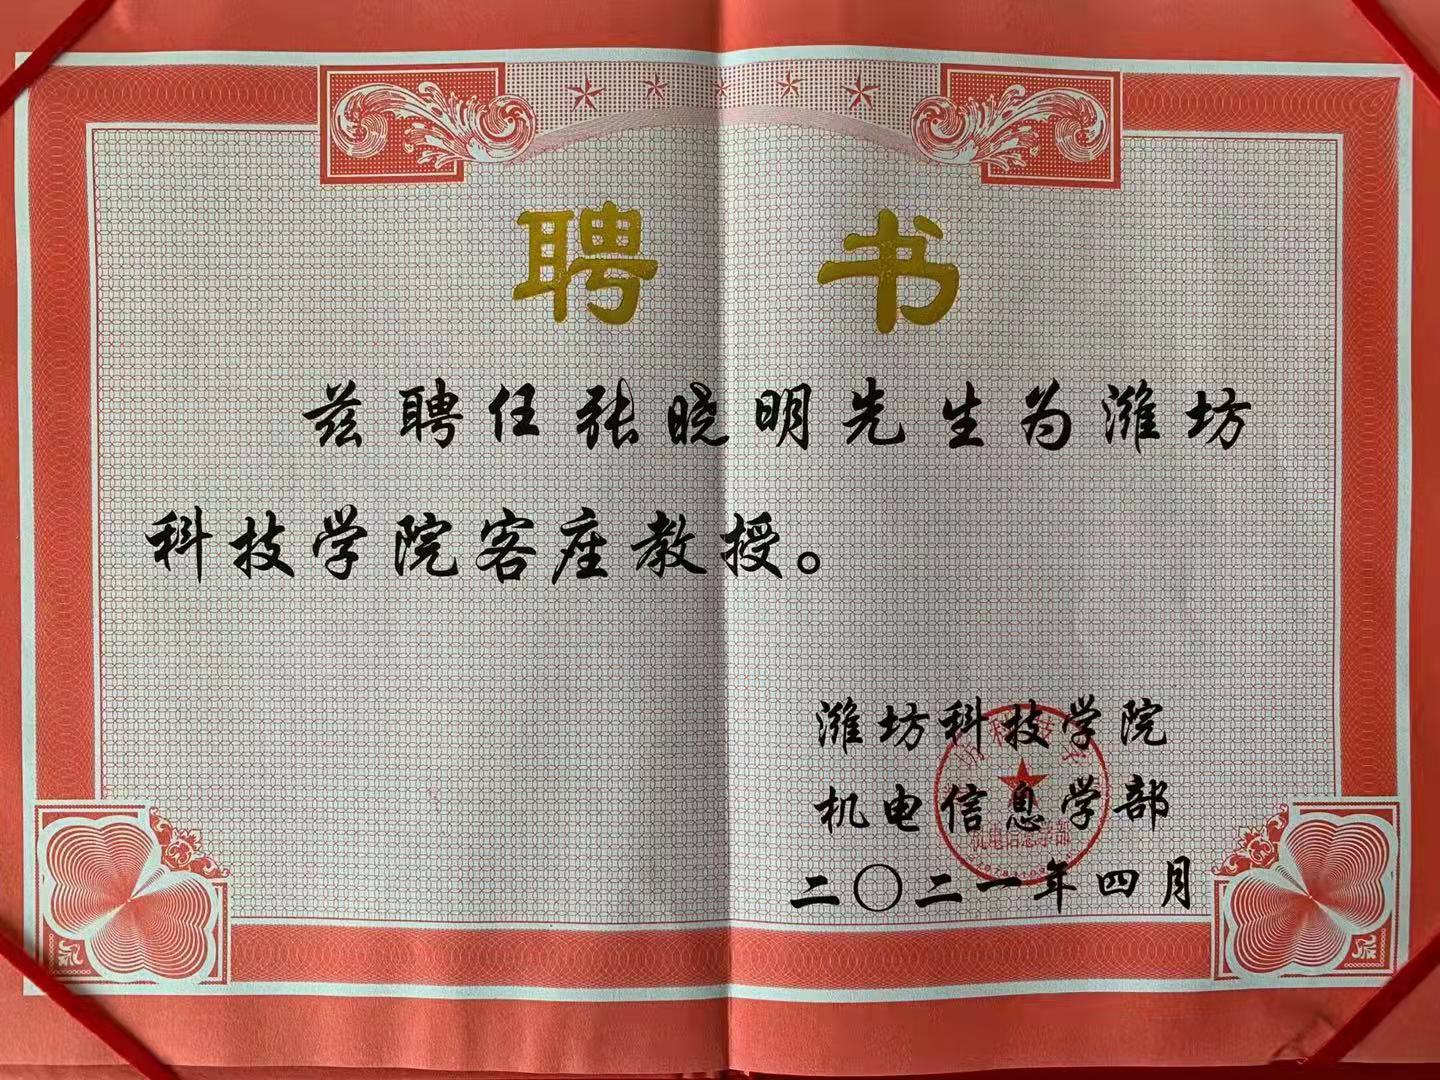 聘书
兹聘任张晓明先生为潍坊
科技学院客座教授。
潍坊科技学院
机电信息学部
二〇二一年四月
机电信息学部